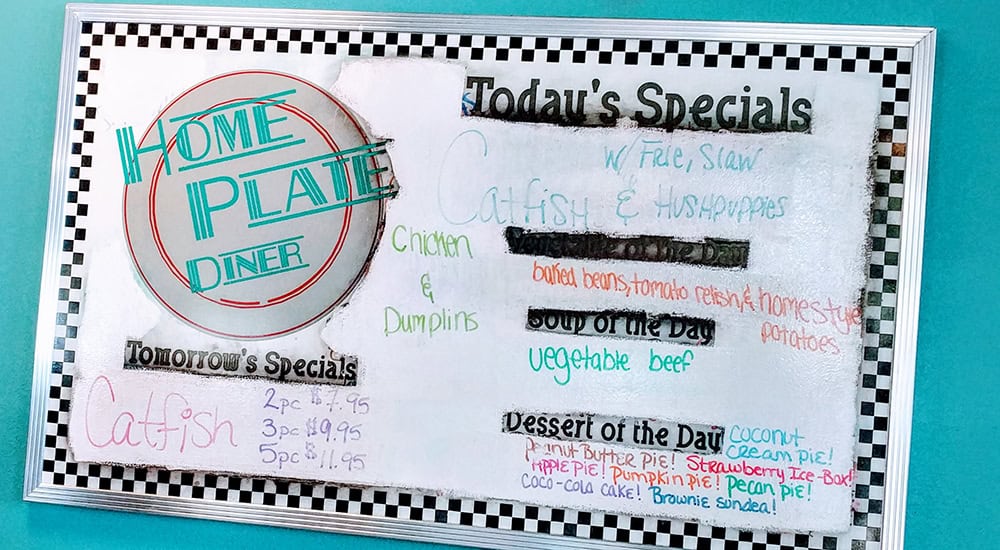 HOME
PLATE
DINER
Today's Specials
w/ Frie, Slaw
Catfish & Hushpuppies
Chicken
&
Dumplins
Vegetable of the Day
baked beans, tomato relish, & homestyle
potatoes
Soup of the Day
vegetable beef
Tomorrow's Specials
Catfish
2pc $7.95
3pc $9.95
5pc $11.95
Dessert of the Day
Coconut
Cream Pie!
Peanut Butter Pie! Strawberry Ice-Box!
Apple Pie! Pumpkin Pie! Pecan Pie!
Coco-Cola Cake! Brownie Sundea!